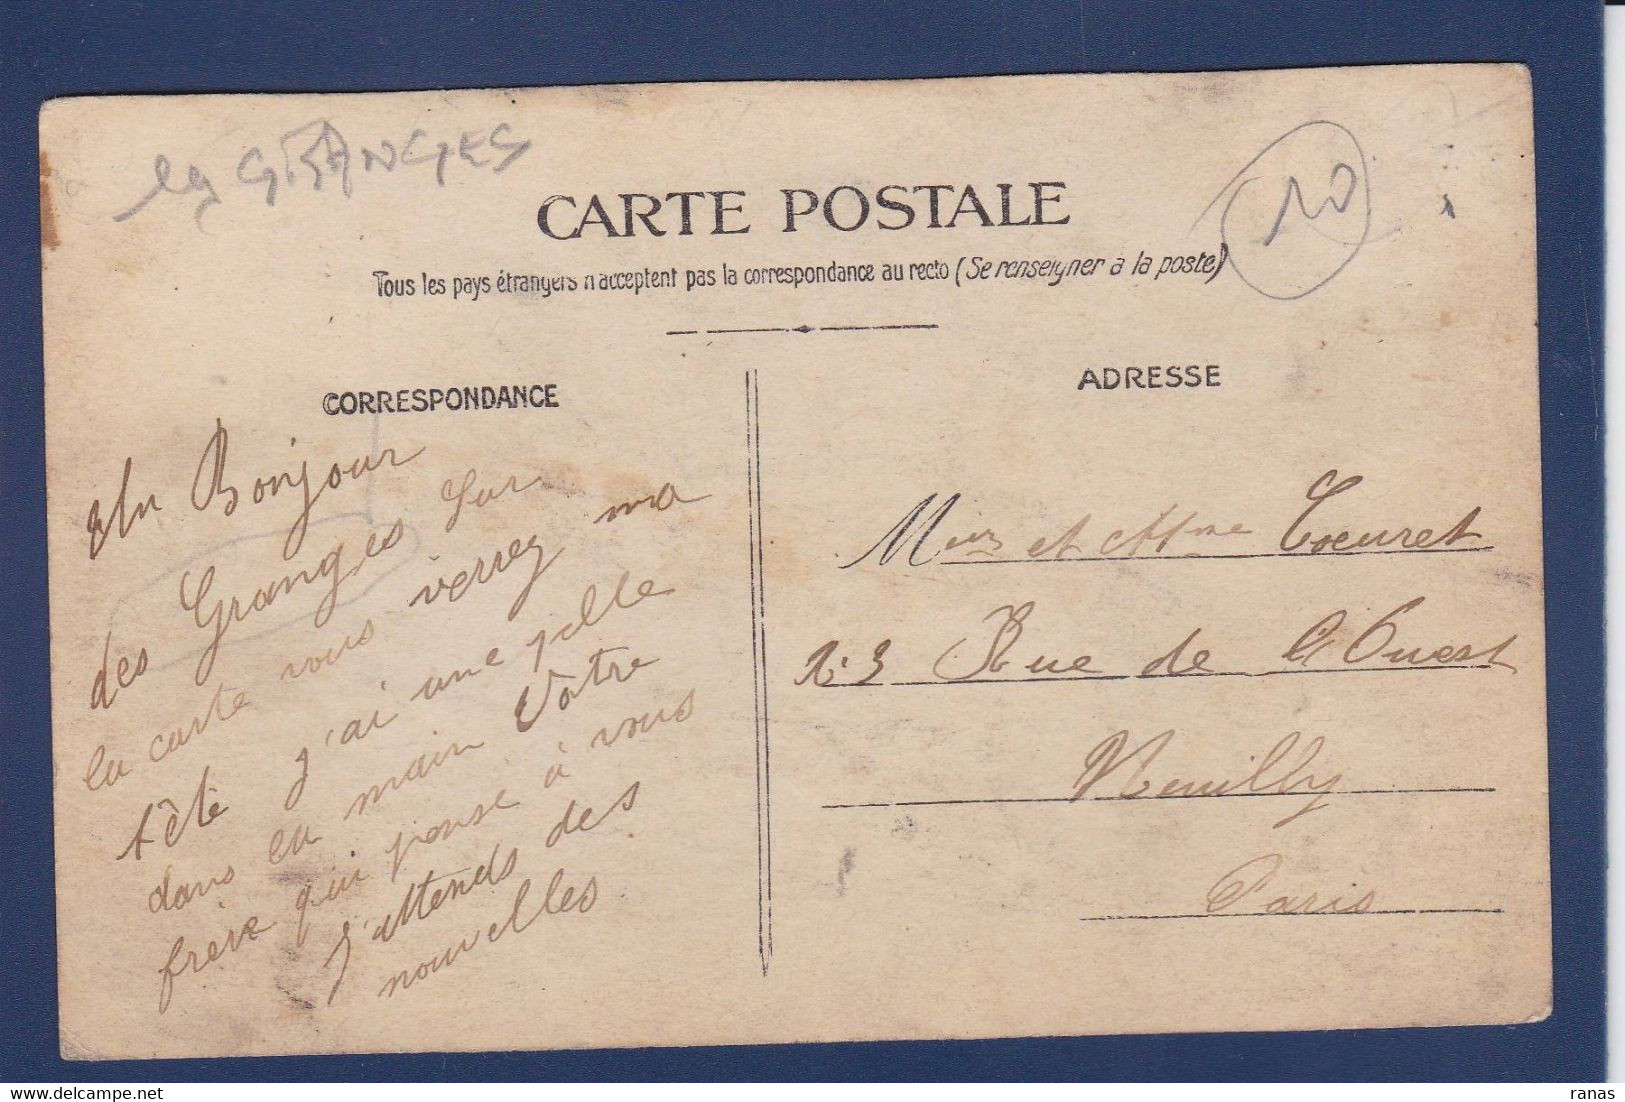 les GRANGES
10
CARTE POSTALE
Tous les pays étrangers n'acceptent pas la correspondance au recto (Se renseigner à la poste)
CORRESPONDANCE
Un Bonjour
des Granges sur
la carte vous verrez ma
tête j'ai une pelle
dans la main Votre
frère qui pense à vous
J'attends des
nouvelles
ADRESSE
et Mme
Rue de l'Ouest
Neuilly
Paris
ranas